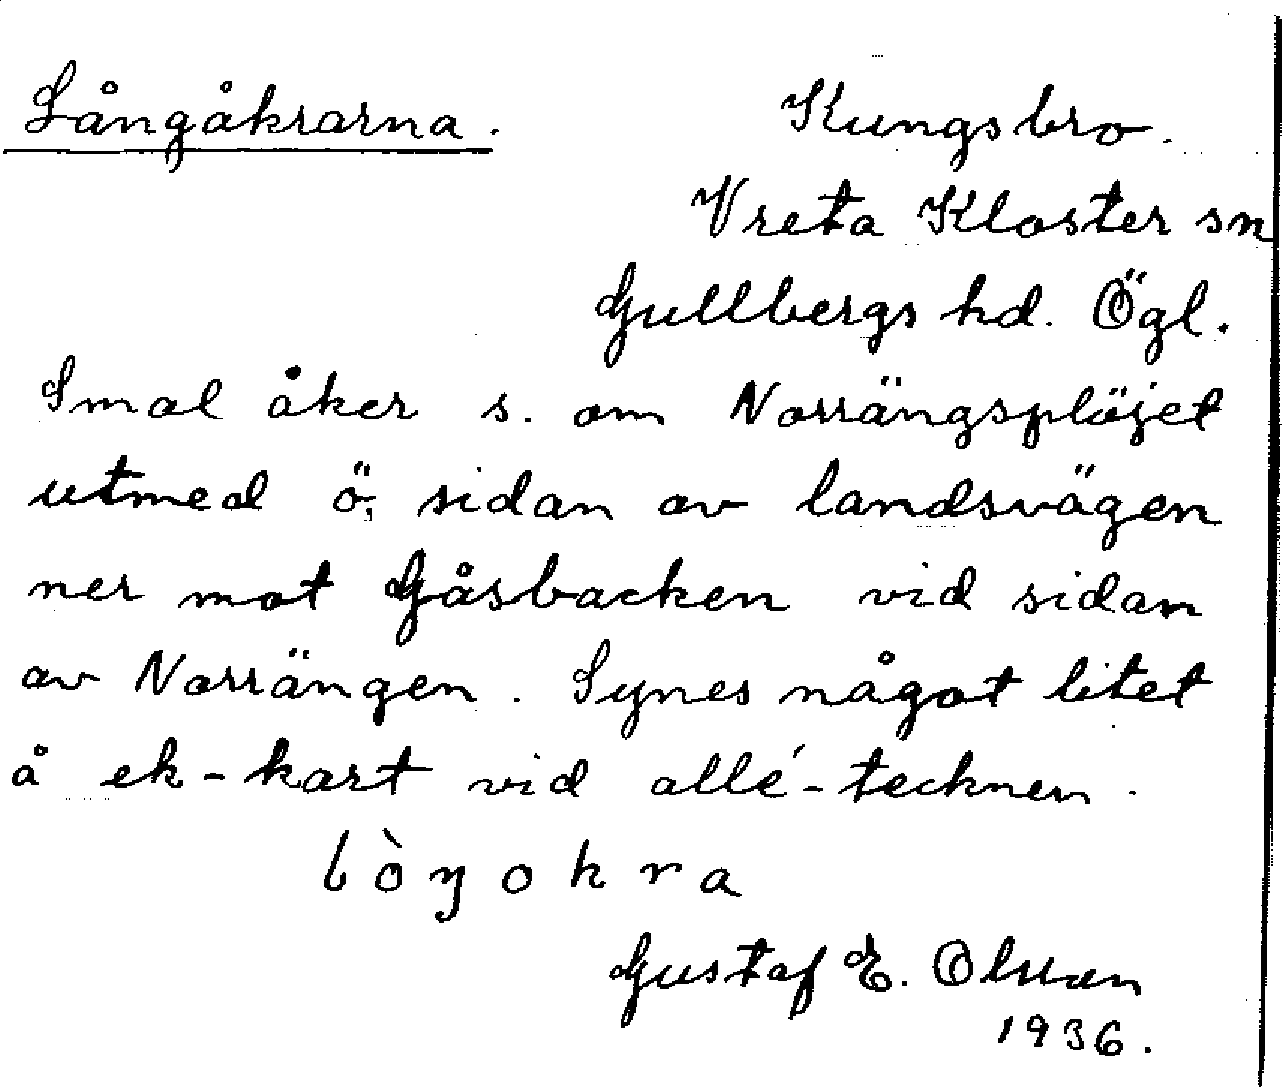 Långåkrarna.
Kungsbro.
Vreta Kloster sn
Gullbergs hd. Ögl.
Smal åker s. om Norrängsplöjet
utmed ö. sidan av landsvägen
ner mot Gåsbacken vid sidan
av Norrängen. Synes något litet
å ek-kart vid allé-tecknen.
lòŋokra
Gustaf E. Olsson
1936.